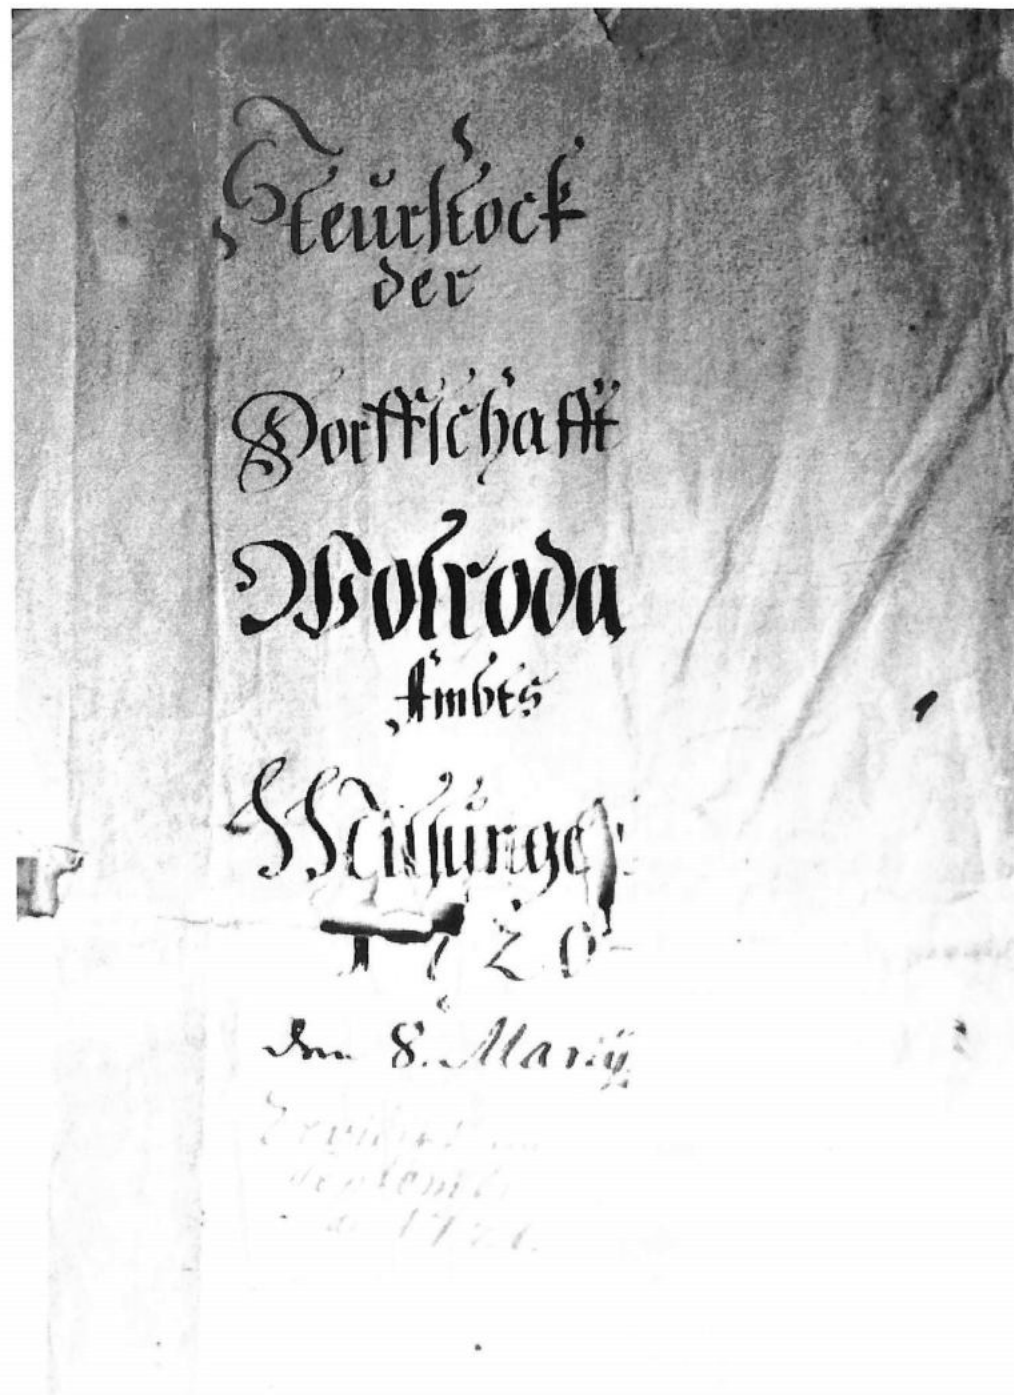 Steurstock
der
Dorffschafft
Wolroda
Ambts
Milsungen
1720
den 8. Martij